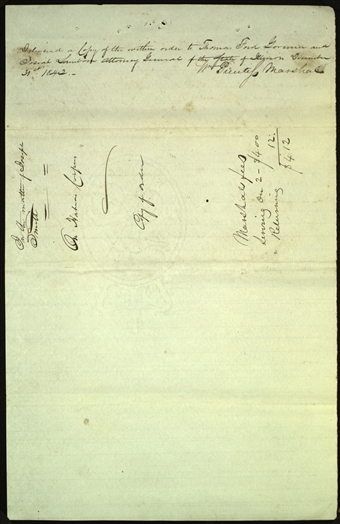 Delivered a Copy of the within order to Thomas Ford Governor and
Josiah Lamborn Attorney General of the State of Illinois December
31st 1842 –
Wm Prentiss Marshal
In the matter of Joseph
Smith
On Habeas Corpus
Copy of order
Marshals fees
Serving on 2 – $4.00
Returning 12
$4.12